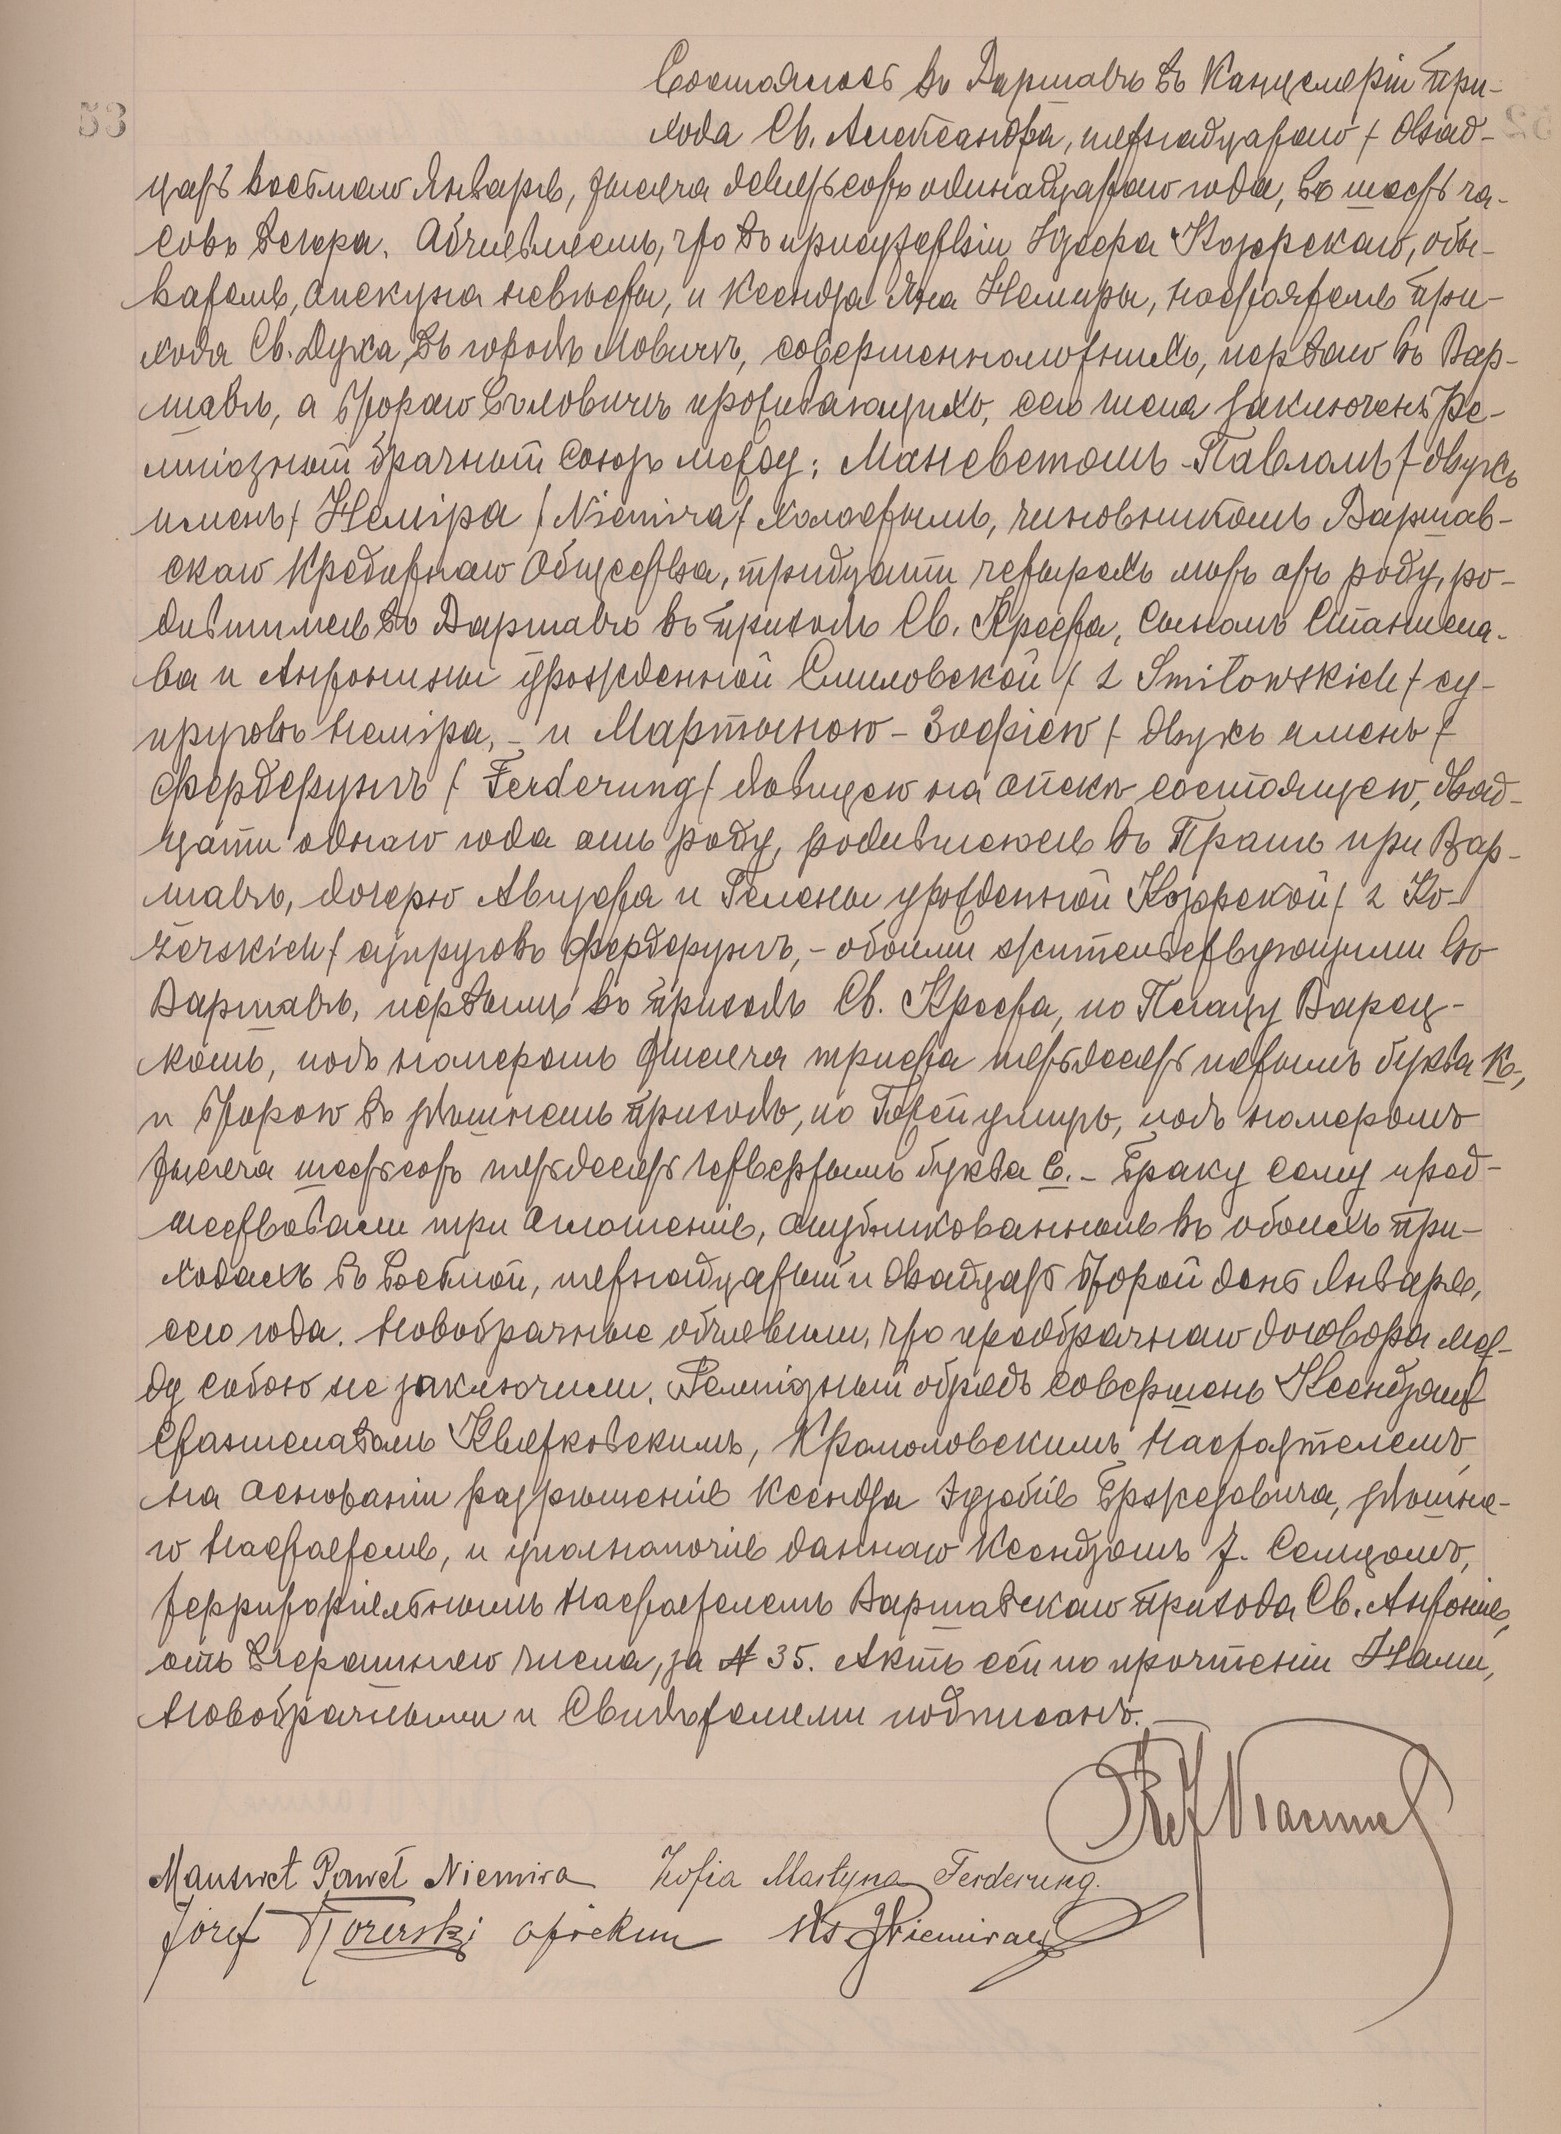 53
Состоялось въ Варшавѣ въ Канцеляріи При-
хода Св. Александра, пятнадцатаго / двад-
цать восьмаго Января, тысяча девятьсотъ одинадцатаго года, въ шесть ча-
совъ вечера. Объявляемъ, что въ присутствіи Іузефа Козерскаго, обы-
вателя, опекуна невѣсты, и Ксендза Яна Немиры, настоятеля При-
хода Св. Духа, въ городѣ Ловичѣ, совершеннолѣтнихъ, перваго въ Вар-
шавѣ, а втораго въ Ловичѣ проживающихъ, сего числа заключенъ Ре-
лигіозный брачный союзъ между: Мансветомъ-Павломъ / двухъ
именъ / Неміра / Niemira / холостымъ, чиновникомъ Варшав-
скаго Кредитнаго Общества, тридцати четырехъ лѣтъ отъ роду, ро-
дившимся въ Варшавѣ въ Приходѣ Св. Креста, сыномъ Станисла-
ва и Антонины урожденной Смиловской / z Smiłowskich / су-
пруговъ Неміра, - и Мартыною-Зофіею / двухъ именъ /
Фердерунгъ / Ferderung / дѣвицею на опекѣ состоящею, двад-
цати одного года отъ роду, родившеюся въ Прагѣ при Вар-
шавѣ, дочерью Августа и Гелены урожденной Козерской / z Ko-
zerskich / супруговъ Фердерунгъ, - обоими жительствующими въ
Варшавѣ, первымъ въ Приходѣ Св. Креста, по Плацу Варец-
комъ, подъ номеромъ тысяча триста пятьдесятъ пятымъ буква К,
и второю въ здѣшнемъ Приходѣ, по Гожей улицѣ, подъ номеромъ
тысяча шестьсотъ пятьдесятъ четвертымъ буква С. - Браку сему пред-
шествовали три оглашенія, опубликованныя въ обоихъ При-
ходахъ въ восьмой, пятнадцатый и двадцать второй день Января,
сего года. Новобрачные объявили, что предбрачнаго договора меж-
ду собою не заключили. Религіозный обрядъ совершенъ Ксендзомъ
Станиславомъ Квятковскимъ, Кромоловскимъ Настоятелемъ
на основаніи разрѣшенія Ксендза Эузебія Бржезовича, здѣшня-
го Настоятеля, и уполномочія даннаго Ксендзомъ З. Селицомъ,
территоріяльнымъ Настоятелемъ Варшавскаго Прихода Св. Антонія,
отъ вчерашняго числа, за № 35. Актъ сей по прочтеніи Нами,
Новобрачными и Свидѣтелями подписанъ.
Manswet Paweł Niemira Zofia Martyna Ferderung.
Józef Kozerski opiekun Ks J Niemira